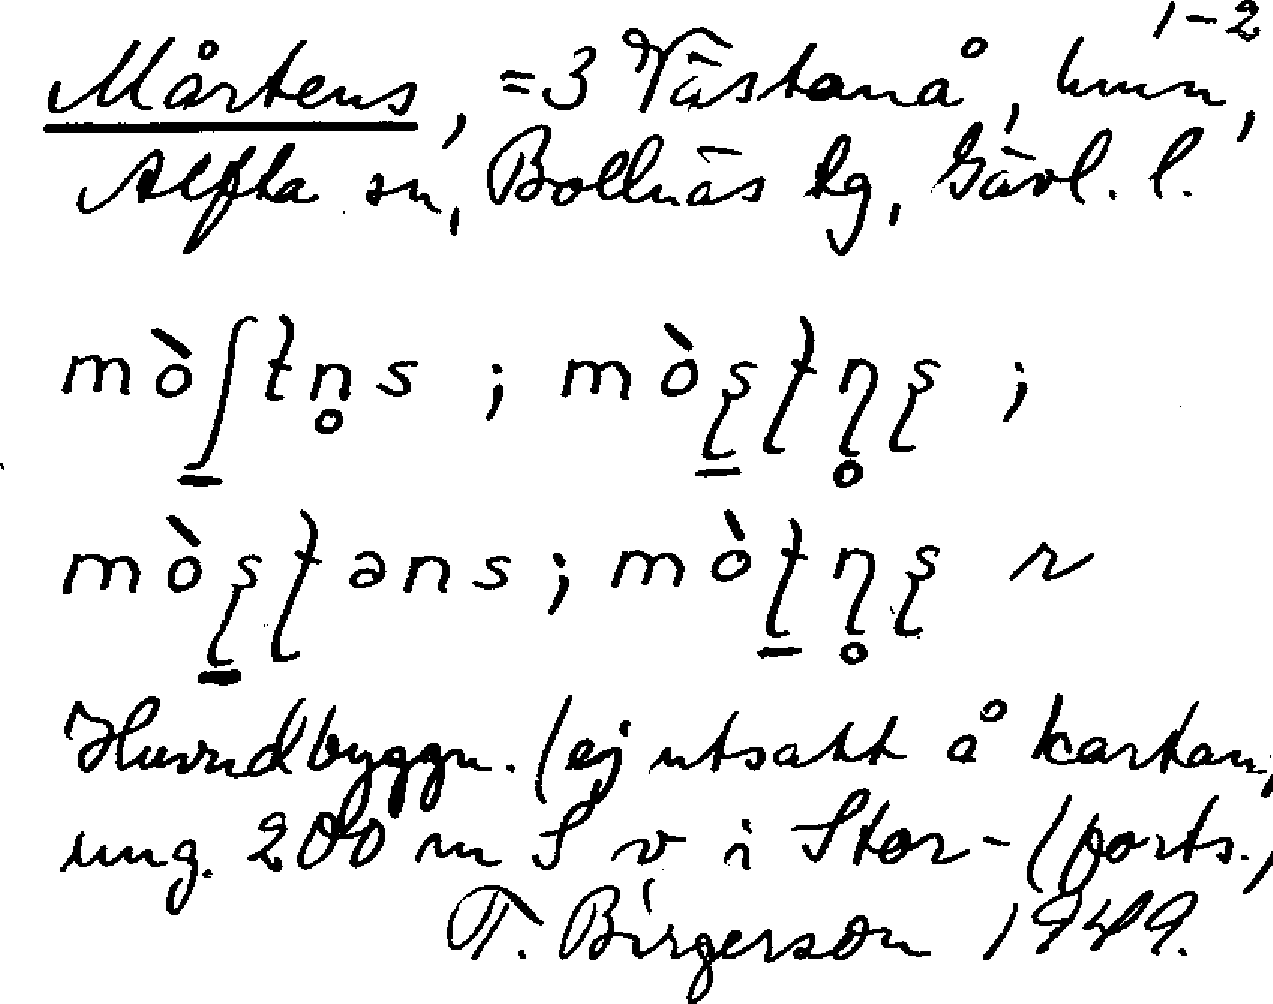 1-2
Mårtens, =3 Västanå, hmn,
Alfta sn, Bollnäs tg, Gävl. l.
mò̱ʃtn̥s ; mòʂʈɳ̥ʂ ;
mòʂʈəns ; mòʈɳ̥ʂ r
Huvudbyggn. (ej utsatt å kartan,
ung. 200 m S v i Stor- (forts.)
T. Birgerson 1949.